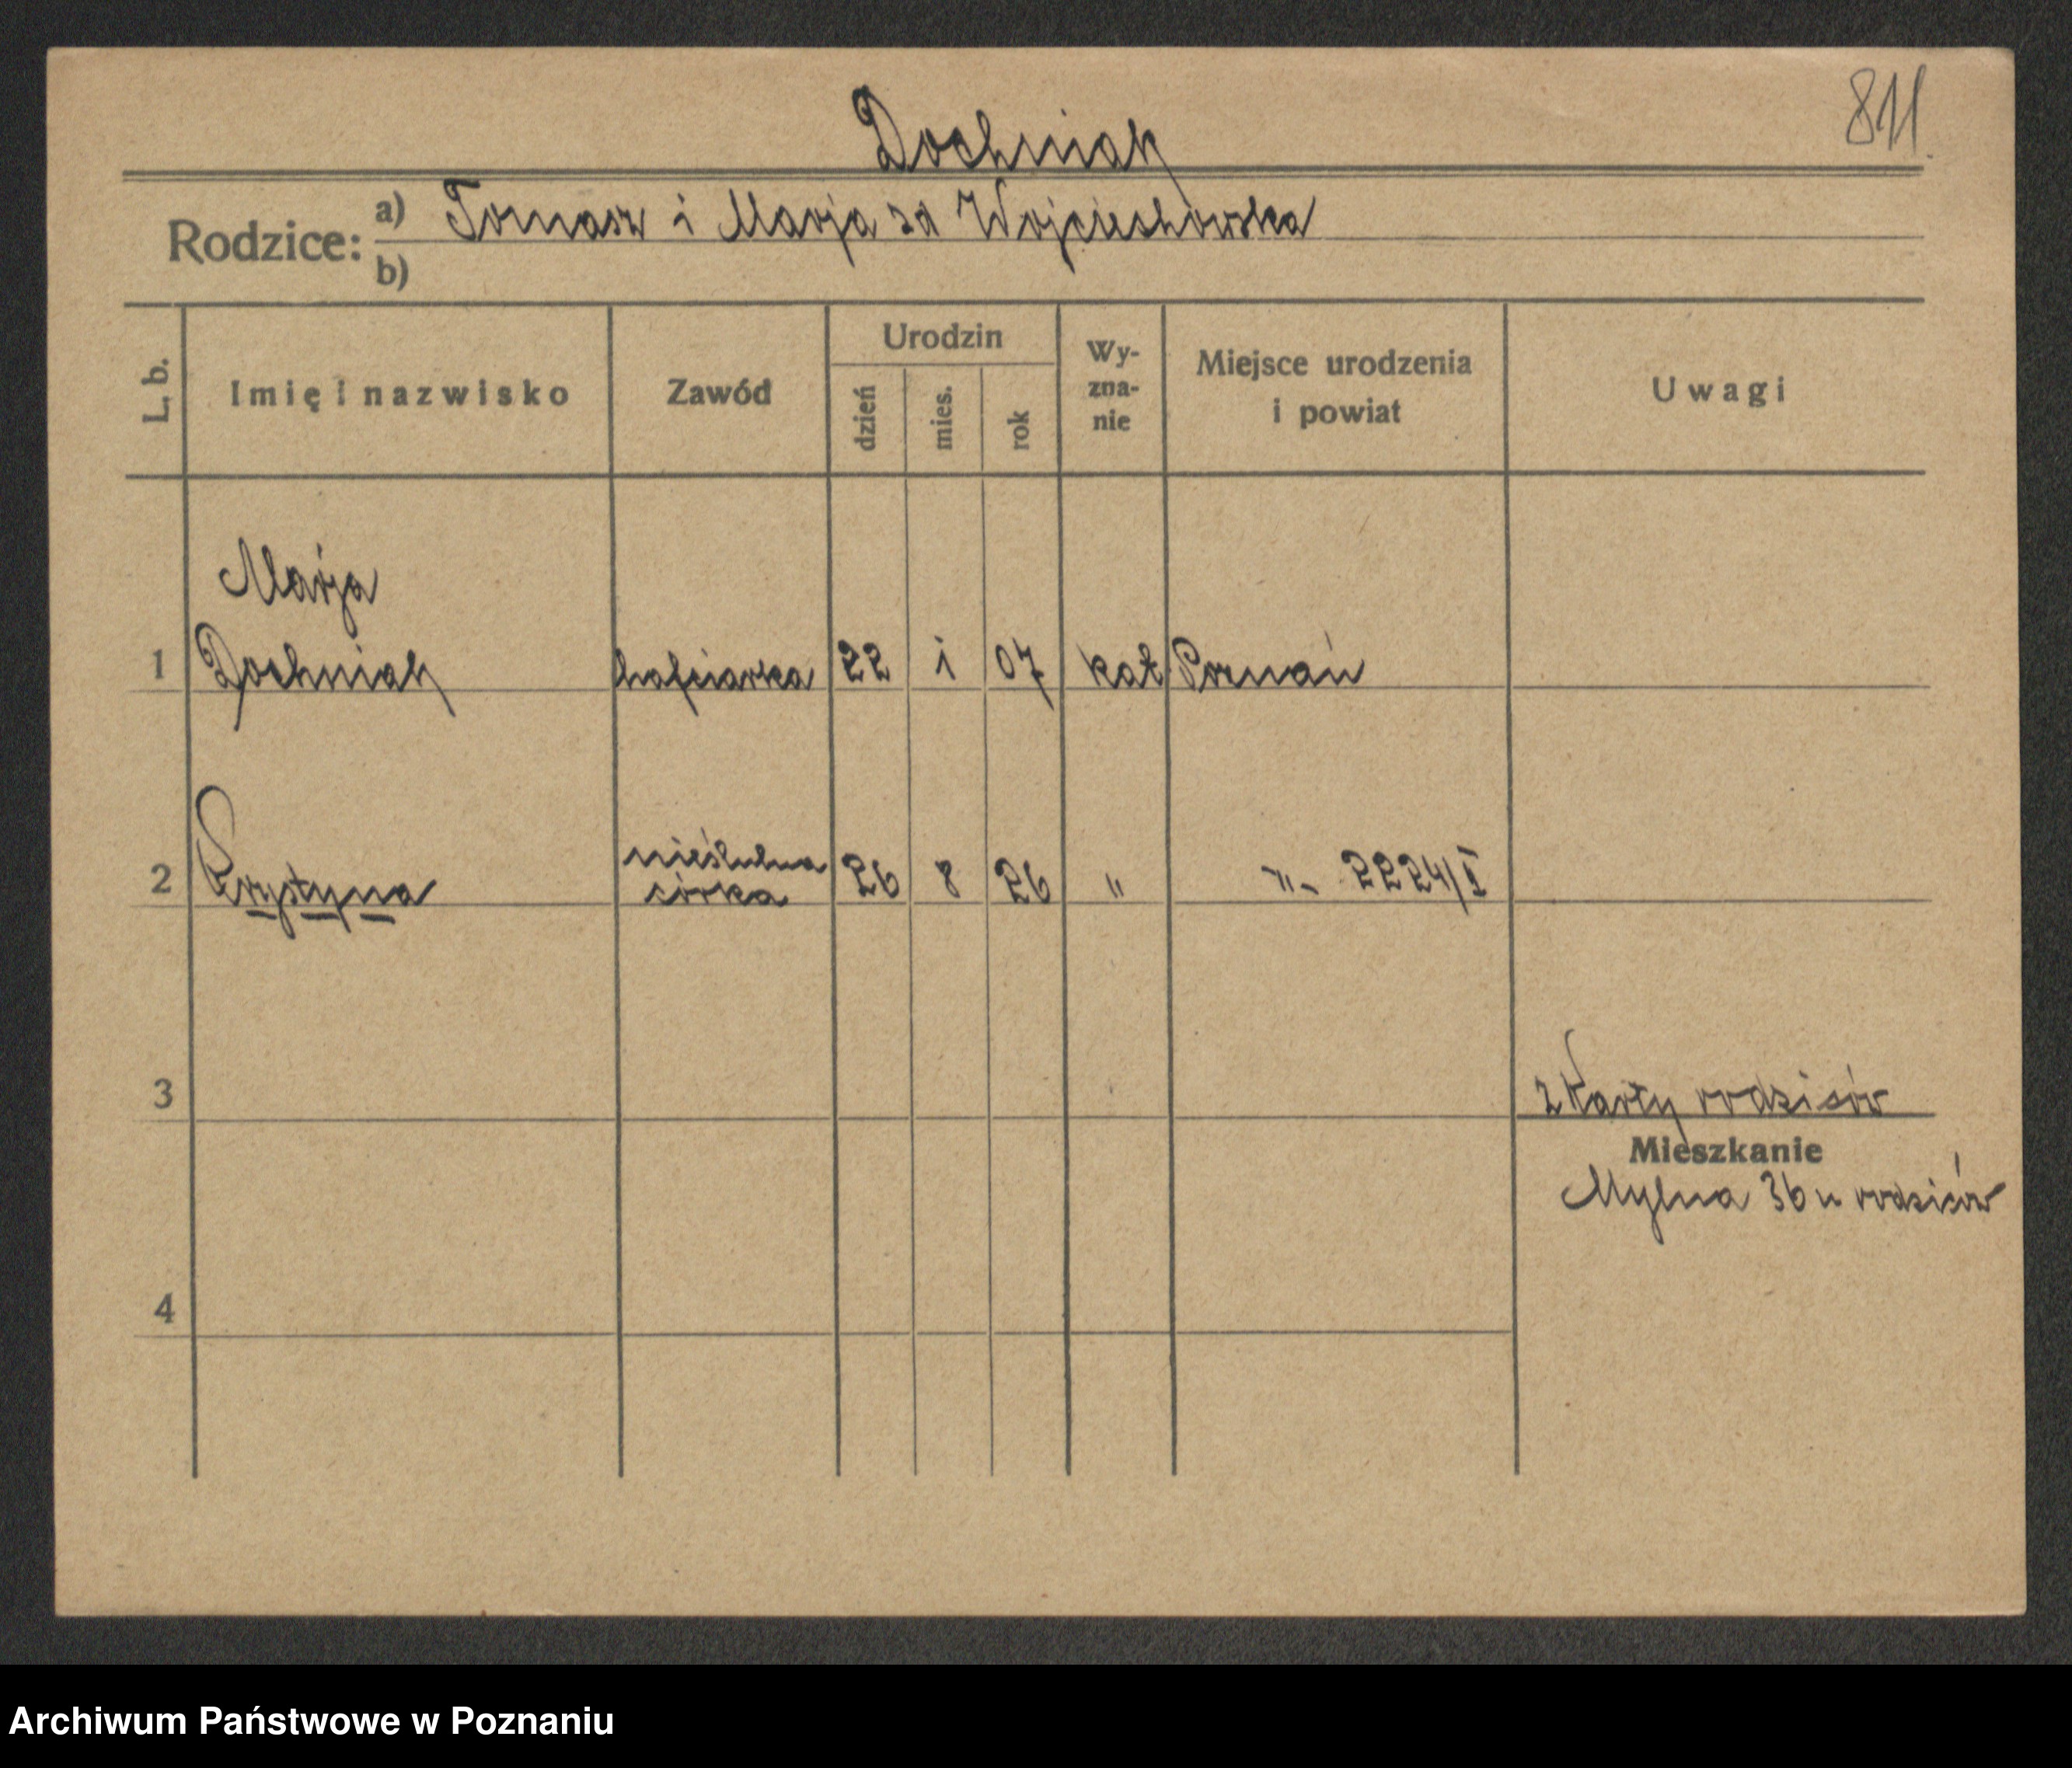 811.
Dochniak
Rodzice: a) Tomasz i Marja zd Wojciechowska
b)
L. b. Imię i nazwisko Zawód Urodzin dzień mies. rok Wy- zna- nie Miejsce urodzenia i powiat Uwagi
Marja
1 Dochniak hafciarka 22 1 07 kat Poznań
nieślubna
2 Krystyna córka 26 8 26 " -"- 2224/I
3
z Karty rodziców
Mieszkanie
Mylna 36 u rodziców
4
Archiwum Państwowe w Poznaniu